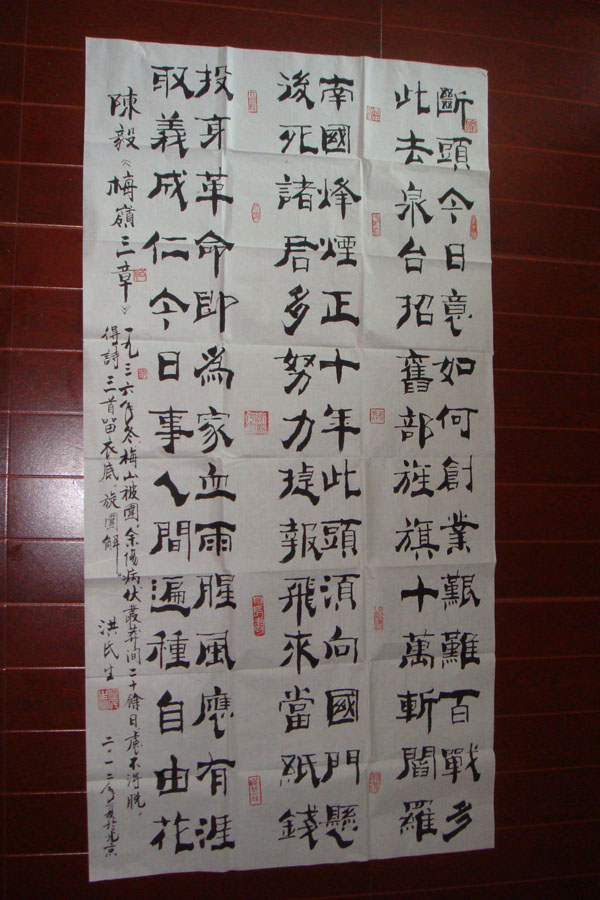 斷頭今日意如何創業艱難百戰多
此去泉台招舊部旌旗十萬斬閻羅
南國烽煙正十年此頭須向國門懸
後死諸君多努力捷報飛來當紙錢
投身革命即為家血雨腥風應有涯
取義成仁今日事人間遍種自由花
陳毅《梅嶺三章》
一九三六年冬梅山被圍、余傷病伏叢莽間二十餘日慮不得脫，
得詩三首留衣底。旋圍解。
洪民生
二〇一二年